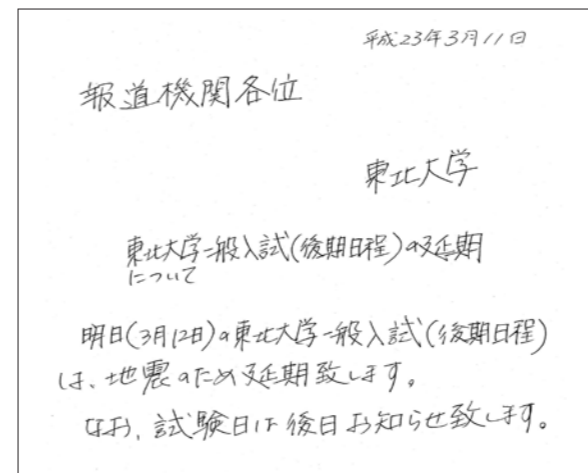 平成23年3月11日
報道機関各位
東北大学
東北大学一般入試(後期日程)の延期
について
明日(3月12日)の東北大学一般入試(後期日程)
は、地震のため延期致します。
なお、試験日は後日お知らせ致します。